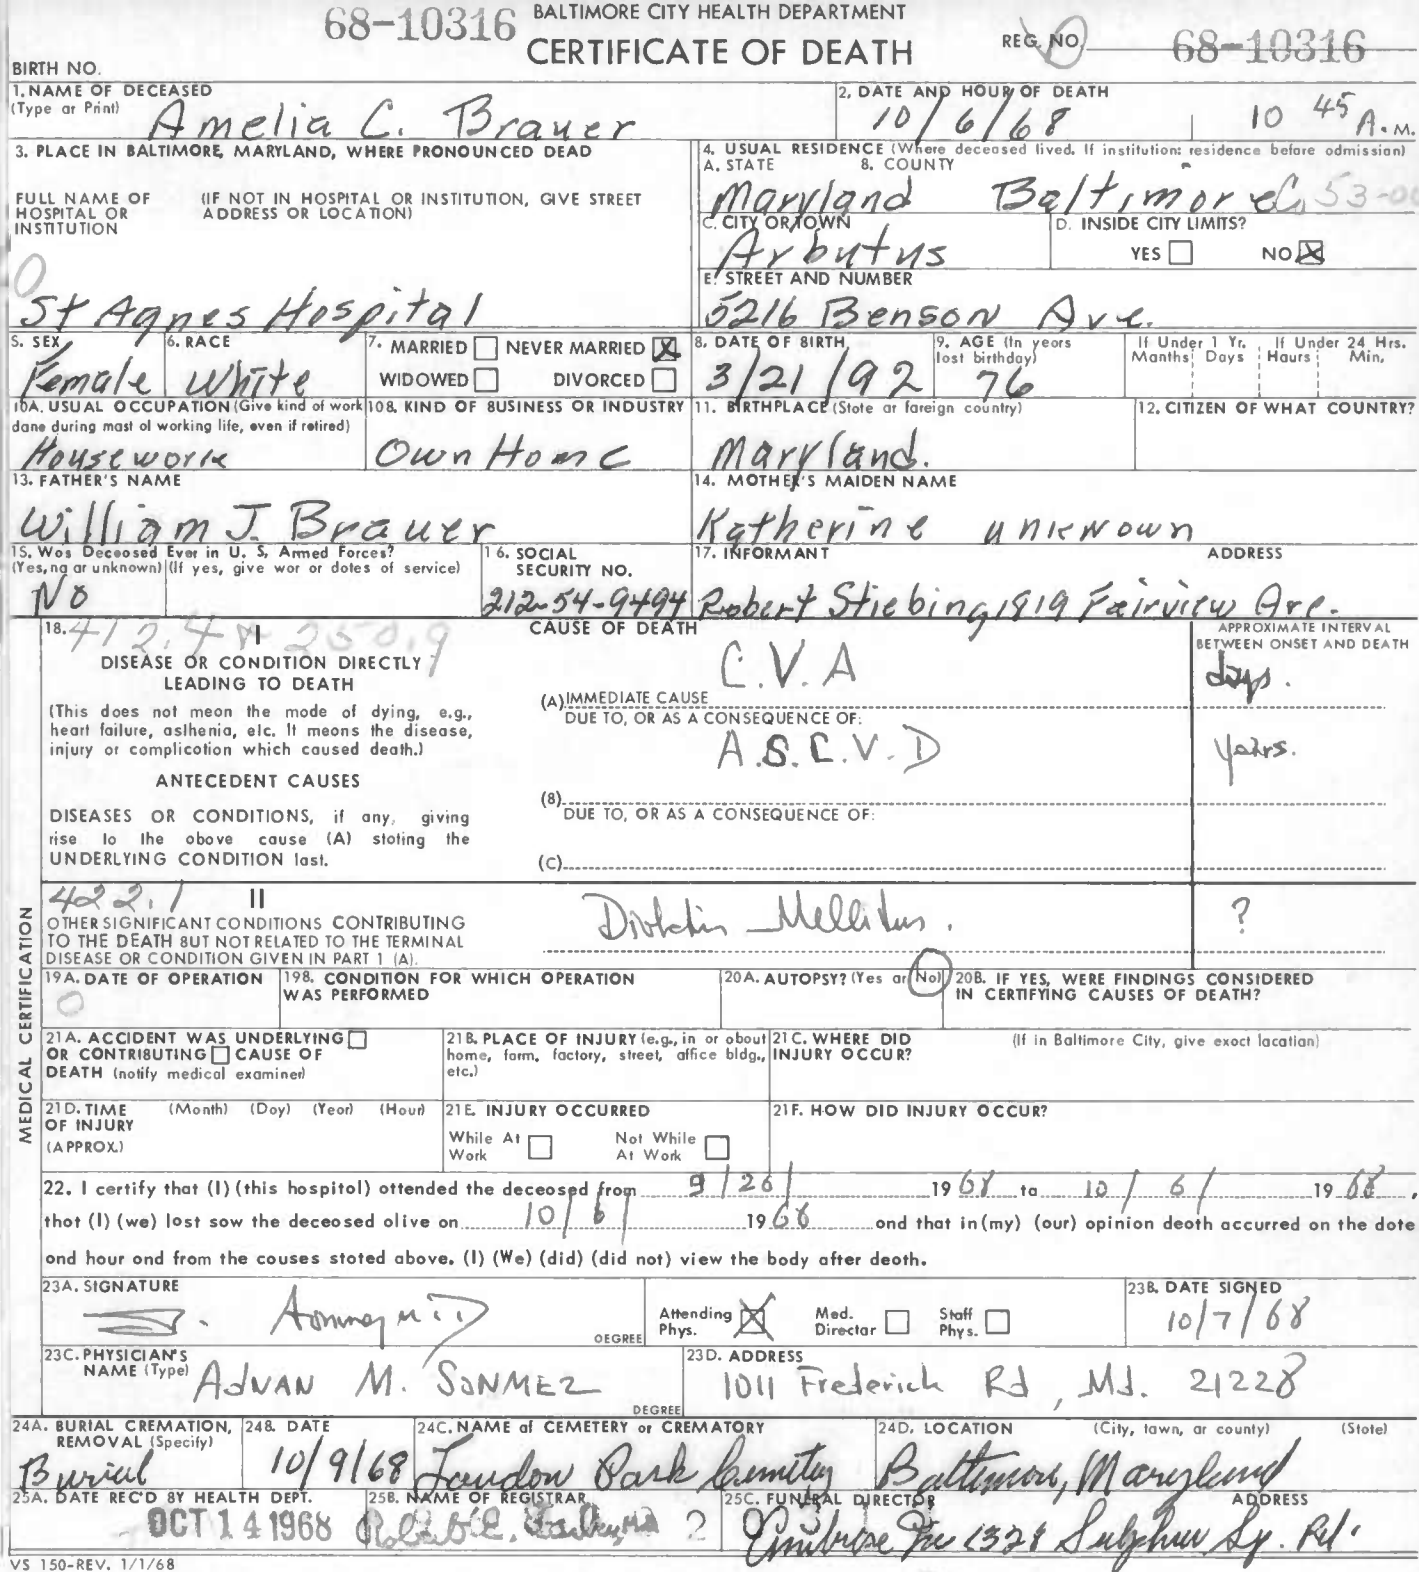 68-10316 BALTIMORE CITY HEALTH DEPARTMENT
CERTIFICATE OF DEATH REG. NO. 68-10316
BIRTH NO.
1. NAME OF DECEASED (Type or Print) Amelia C. Brauer
2. DATE AND HOUR OF DEATH 10/6/68 10 45 A.M.
3. PLACE IN BALTIMORE, MARYLAND, WHERE PRONOUNCED DEAD
FULL NAME OF HOSPITAL OR INSTITUTION (IF NOT IN HOSPITAL OR INSTITUTION, GIVE STREET ADDRESS OR LOCATION)
St Agnes Hospital
4. USUAL RESIDENCE (Where deceased lived. If institution: residence before admission)
A. STATE B. COUNTY
Maryland Baltimore Co. 53-00
C. CITY OR TOWN Arbutus
D. INSIDE CITY LIMITS? YES NO X
E. STREET AND NUMBER
5216 Benson Ave.
5. SEX Female
6. RACE White
7. MARRIED NEVER MARRIED X
WIDOWED DIVORCED
8. DATE OF BIRTH 3/21/92
9. AGE (In years last birthday) 76
If Under 1 Yr. Months Days If Under 24 Hrs. Hours Min.
10A. USUAL OCCUPATION (Give kind of work done during most of working life, even if retired) Housework
10B. KIND OF BUSINESS OR INDUSTRY Own Home
11. BIRTHPLACE (State or foreign country) Maryland.
12. CITIZEN OF WHAT COUNTRY?
13. FATHER'S NAME William J. Brauer
14. MOTHER'S MAIDEN NAME Katherine unknown
15. Was Deceased Ever in U. S. Armed Forces? (Yes, no or unknown) (If yes, give war or dates of service) No
16. SOCIAL SECURITY NO. 212-54-9494
17. INFORMANT ADDRESS
Robert Stiebing 1919 Fairview Ave.
18. 412.4 250.9
I
DISEASE OR CONDITION DIRECTLY LEADING TO DEATH
(This does not mean the mode of dying, e.g., heart failure, asthenia, etc. It means the disease, injury or complication which caused death.)
ANTECEDENT CAUSES
DISEASES OR CONDITIONS, if any, giving rise to the above cause (A) stating the UNDERLYING CONDITION last.
CAUSE OF DEATH
APPROXIMATE INTERVAL BETWEEN ONSET AND DEATH
C.V.A days.
(A) IMMEDIATE CAUSE
DUE TO, OR AS A CONSEQUENCE OF:
A.S.C.V.D years.
(B)
DUE TO, OR AS A CONSEQUENCE OF:
(C)
MEDICAL CERTIFICATION
422.1 II
OTHER SIGNIFICANT CONDITIONS CONTRIBUTING TO THE DEATH BUT NOT RELATED TO THE TERMINAL DISEASE OR CONDITION GIVEN IN PART 1 (A).
Diabetis Mellitus. ?
19A. DATE OF OPERATION 0
19B. CONDITION FOR WHICH OPERATION WAS PERFORMED
20A. AUTOPSY? (Yes or No)
20B. IF YES, WERE FINDINGS CONSIDERED IN CERTIFYING CAUSES OF DEATH?
21A. ACCIDENT WAS UNDERLYING OR CONTRIBUTING CAUSE OF DEATH (notify medical examiner)
21B. PLACE OF INJURY (e.g., in or about home, farm, factory, street, office bldg., etc.)
21C. WHERE DID INJURY OCCUR? (If in Baltimore City, give exact location)
21D. TIME OF INJURY (APPROX.) (Month) (Day) (Year) (Hour)
21E. INJURY OCCURRED
While At Work Not While At Work
21F. HOW DID INJURY OCCUR?
22. I certify that (I) (this hospital) attended the deceased from 9/26/ 1968 to 10/6/ 1968,
that (I) (we) last saw the deceased alive on 10/6/ 1968 and that in (my) (our) opinion death occurred on the date
and hour and from the causes stated above. (I) (We) (did) (did not) view the body after death.
23A. SIGNATURE DEGREE
Attending Phys. X Med. Director Staff Phys.
23B. DATE SIGNED 10/7/68
23C. PHYSICIAN'S NAME (Type) AdNAN M. SONMEZ DEGREE
23D. ADDRESS 1011 Frederick Rd, Md. 21228
24A. BURIAL CREMATION, REMOVAL (Specify) Burial
24B. DATE 10/9/68
24C. NAME of CEMETERY or CREMATORY Loudon Park Cemetery
24D. LOCATION (City, town, or county) (State)
Baltimore, Maryland
25A. DATE REC'D BY HEALTH DEPT. OCT 14 1968
25B. NAME OF REGISTRAR Robert E. Farber, MD 2
25C. FUNERAL DIRECTOR ADDRESS
Ambrose Inc 1328 Sulphur Sp. Rd.
VS 150-REV. 1/1/68